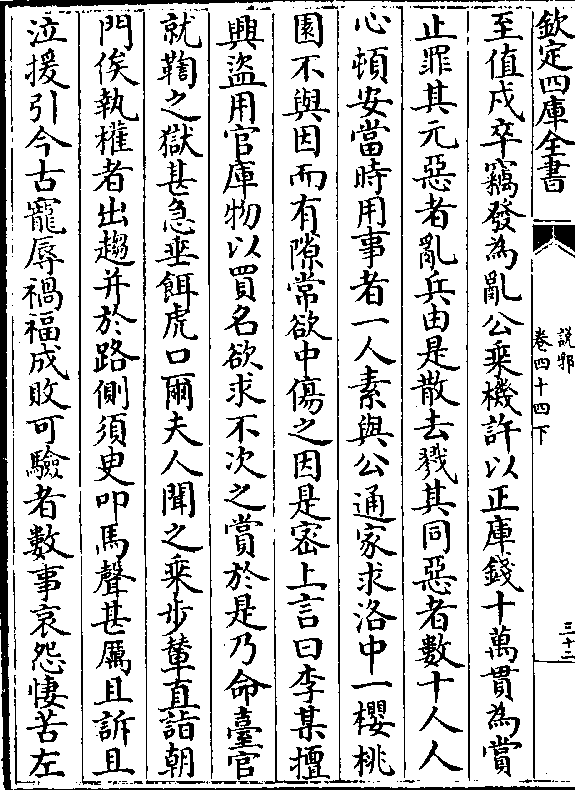 欽定四庫全書
説郛
卷四十四下
三十二
至值戍卒竊發為亂公乗機許以正庫錢十萬貫為賞
止罪其元惡者亂兵由是散去戮其同惡者數十人人
心頓安當時用事者一人素與公通家求洛中一櫻桃
園不與因而有隙常欲中傷之因是宻上言曰李某擅
興盜用官庫物以買名欲求不次之賞於是乃命臺官
就鞫之獄甚急垂餌虎口爾夫人聞之乗步輦直詣朝
門俟執權者出趨并於路側須臾叩馬聲甚厲且訴且
泣援引今古寵辱禍福成敗可驗者數事哀怨悽苦左